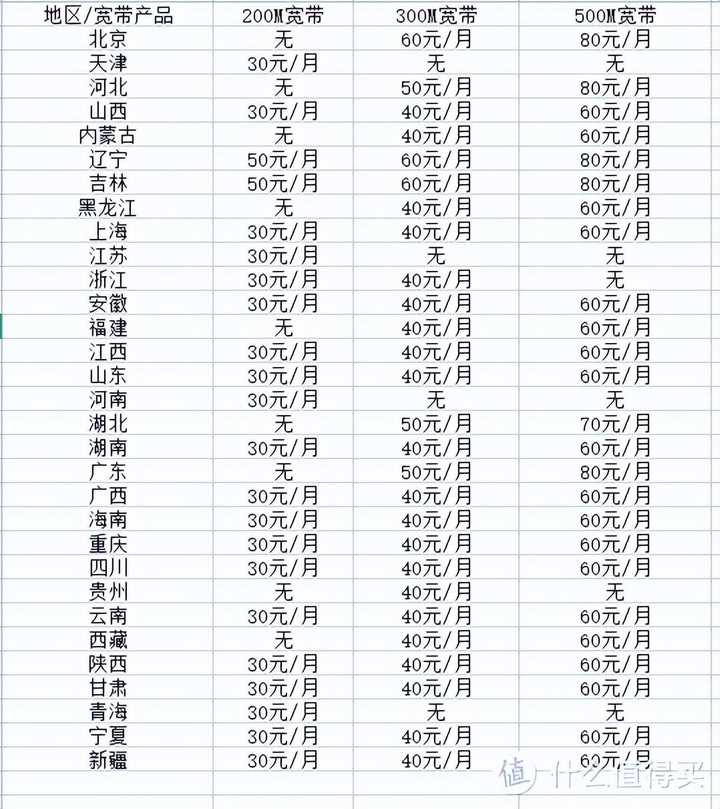 地区/宽带产品 200M宽带 300M宽带 500M宽带
北京 无 60元/月 80元/月
天津 30元/月 无 无
河北 无 50元/月 80元/月
山西 30元/月 40元/月 60元/月
内蒙古 无 40元/月 60元/月
辽宁 50元/月 60元/月 80元/月
吉林 50元/月 60元/月 80元/月
黑龙江 无 40元/月 60元/月
上海 30元/月 40元/月 60元/月
江苏 30元/月 无 无
浙江 30元/月 40元/月 无
安徽 30元/月 40元/月 60元/月
福建 无 40元/月 60元/月
江西 30元/月 40元/月 60元/月
山东 30元/月 40元/月 60元/月
河南 30元/月 无 无
湖北 无 50元/月 70元/月
湖南 30元/月 40元/月 60元/月
广东 无 50元/月 80元/月
广西 30元/月 40元/月 60元/月
海南 30元/月 40元/月 60元/月
重庆 30元/月 40元/月 60元/月
四川 30元/月 40元/月 60元/月
贵州 无 40元/月 无
云南 30元/月 40元/月 60元/月
西藏 无 40元/月 60元/月
陕西 30元/月 40元/月 60元/月
甘肃 30元/月 40元/月 60元/月
青海 30元/月 无 无
宁夏 30元/月 40元/月 60元/月
新疆 30元/月 40元/月 60元/月
值 什么值得买